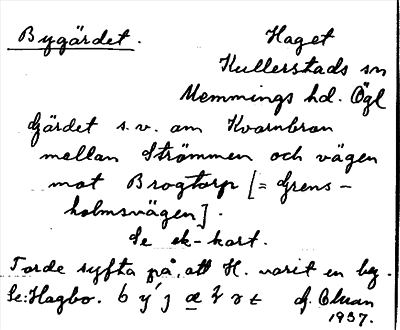 Bygärdet. Haget
Kullerstads sn
Memmings hd. Ögl
Gärdet s.v. om Kvarnbron
mellan Strömmen och vägen
mot Brogtorp [= Grens-
holmsvägen].
Se ek-kart.
Torde syfta på, att H. varit en by.
Se: Hagbo.
1937.